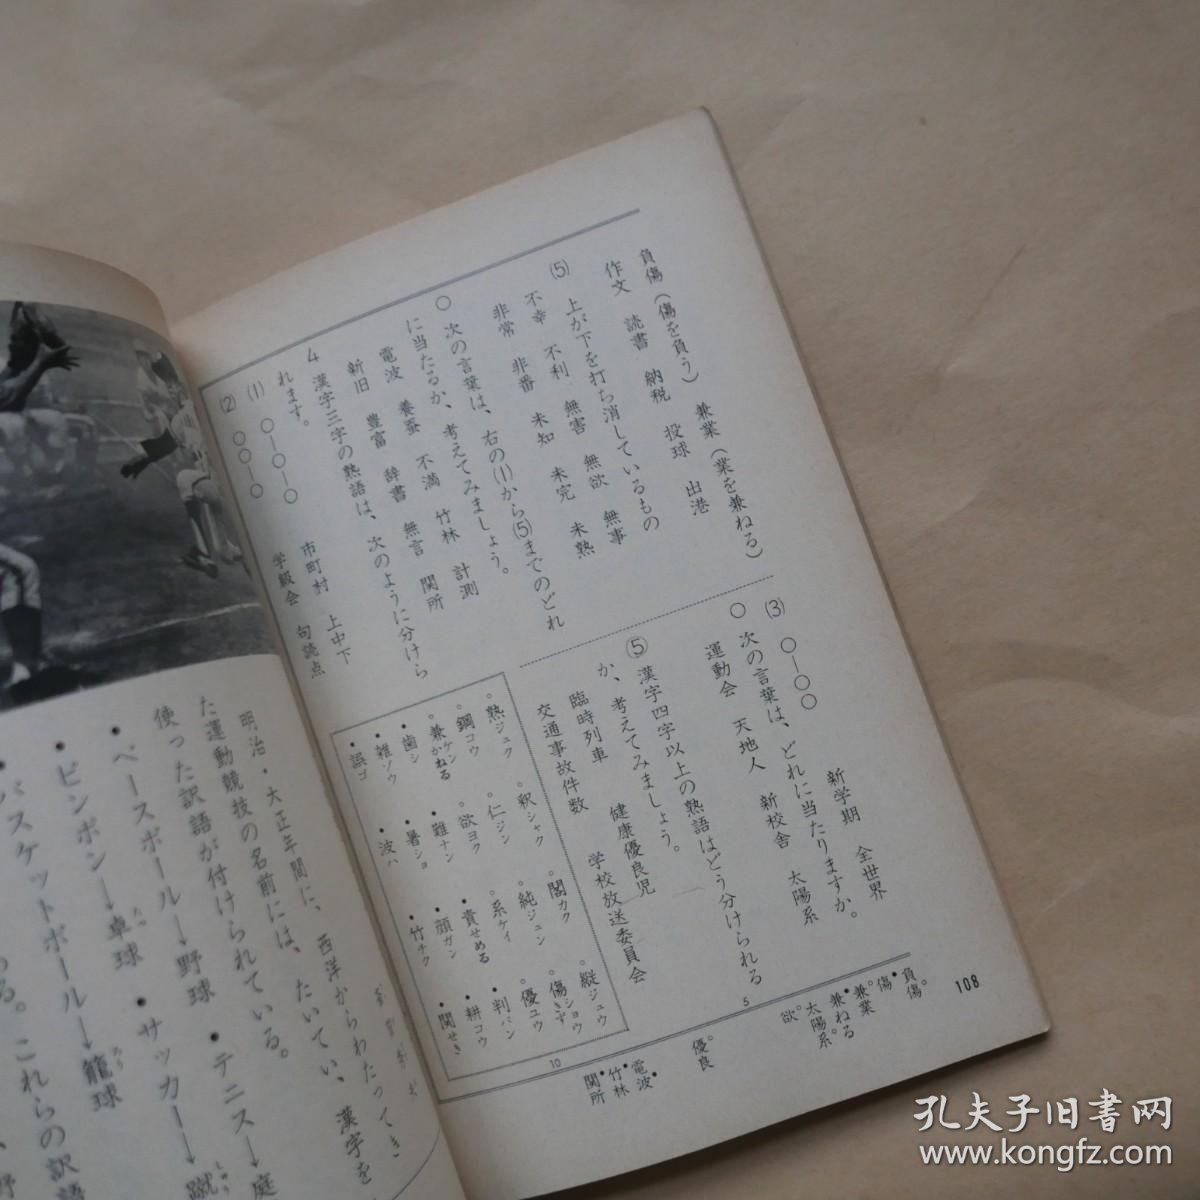 負傷(傷を負う) 兼業(業を兼ねる)
作文 読書 納税 投球 出港
(5) 上が下を打ち消しているもの
不幸 不利 無害 無欲 無事
非常 非番 未知 未完 未熟
○ 次の言葉は、右の(1)から(5)までのどれ
に当たるか、考えてみましょう。
電波 養蚕 不満 竹林 計測
新旧 豊富 辞書 無言 関所
4 漢字三字の熟語は、次のように分けら
れます。
(1) ○―○―○ 市町村 上中下
(2) ○○―○ 学級会 句読点
(3) ○―○○ 新学期 全世界
○ 次の言葉は、どれに当たりますか。
運動会 天地人 新校舎 太陽系
⑤ 漢字四字以上の熟語はどう分けられる
か、考えてみましょう。
臨時列車 健康優良児
交通事故件数 学校放送委員会
熟ジュク 釈シャク 閣カク 縦ジュウ
鋼コウ 仁ジン 純ジュン 傷ショウきず
兼ケンかねる 欲ヨク 系ケイ 優ユウ
歯シ 難ナン 責せめる 判バン
雑ゾウ 暑ショ 顔ガン 耕コウ
誤ゴ 波ハ 竹チク 関せき
5
10
108
負傷
傷
兼業
兼ねる
太陽系
欲
優良
電波
竹林
関所
明治・大正年間に、西洋からわたってき
た運動競技の名前には、たいてい、漢字を
使った訳語が付けられている。
・ベースボール→野球 ・テニス→庭
・ピンポン→卓球 ・サッカー→蹴
・バスケットボール→籠球
ある。これらの訳語
孔夫子旧书网
www.kongfz.com